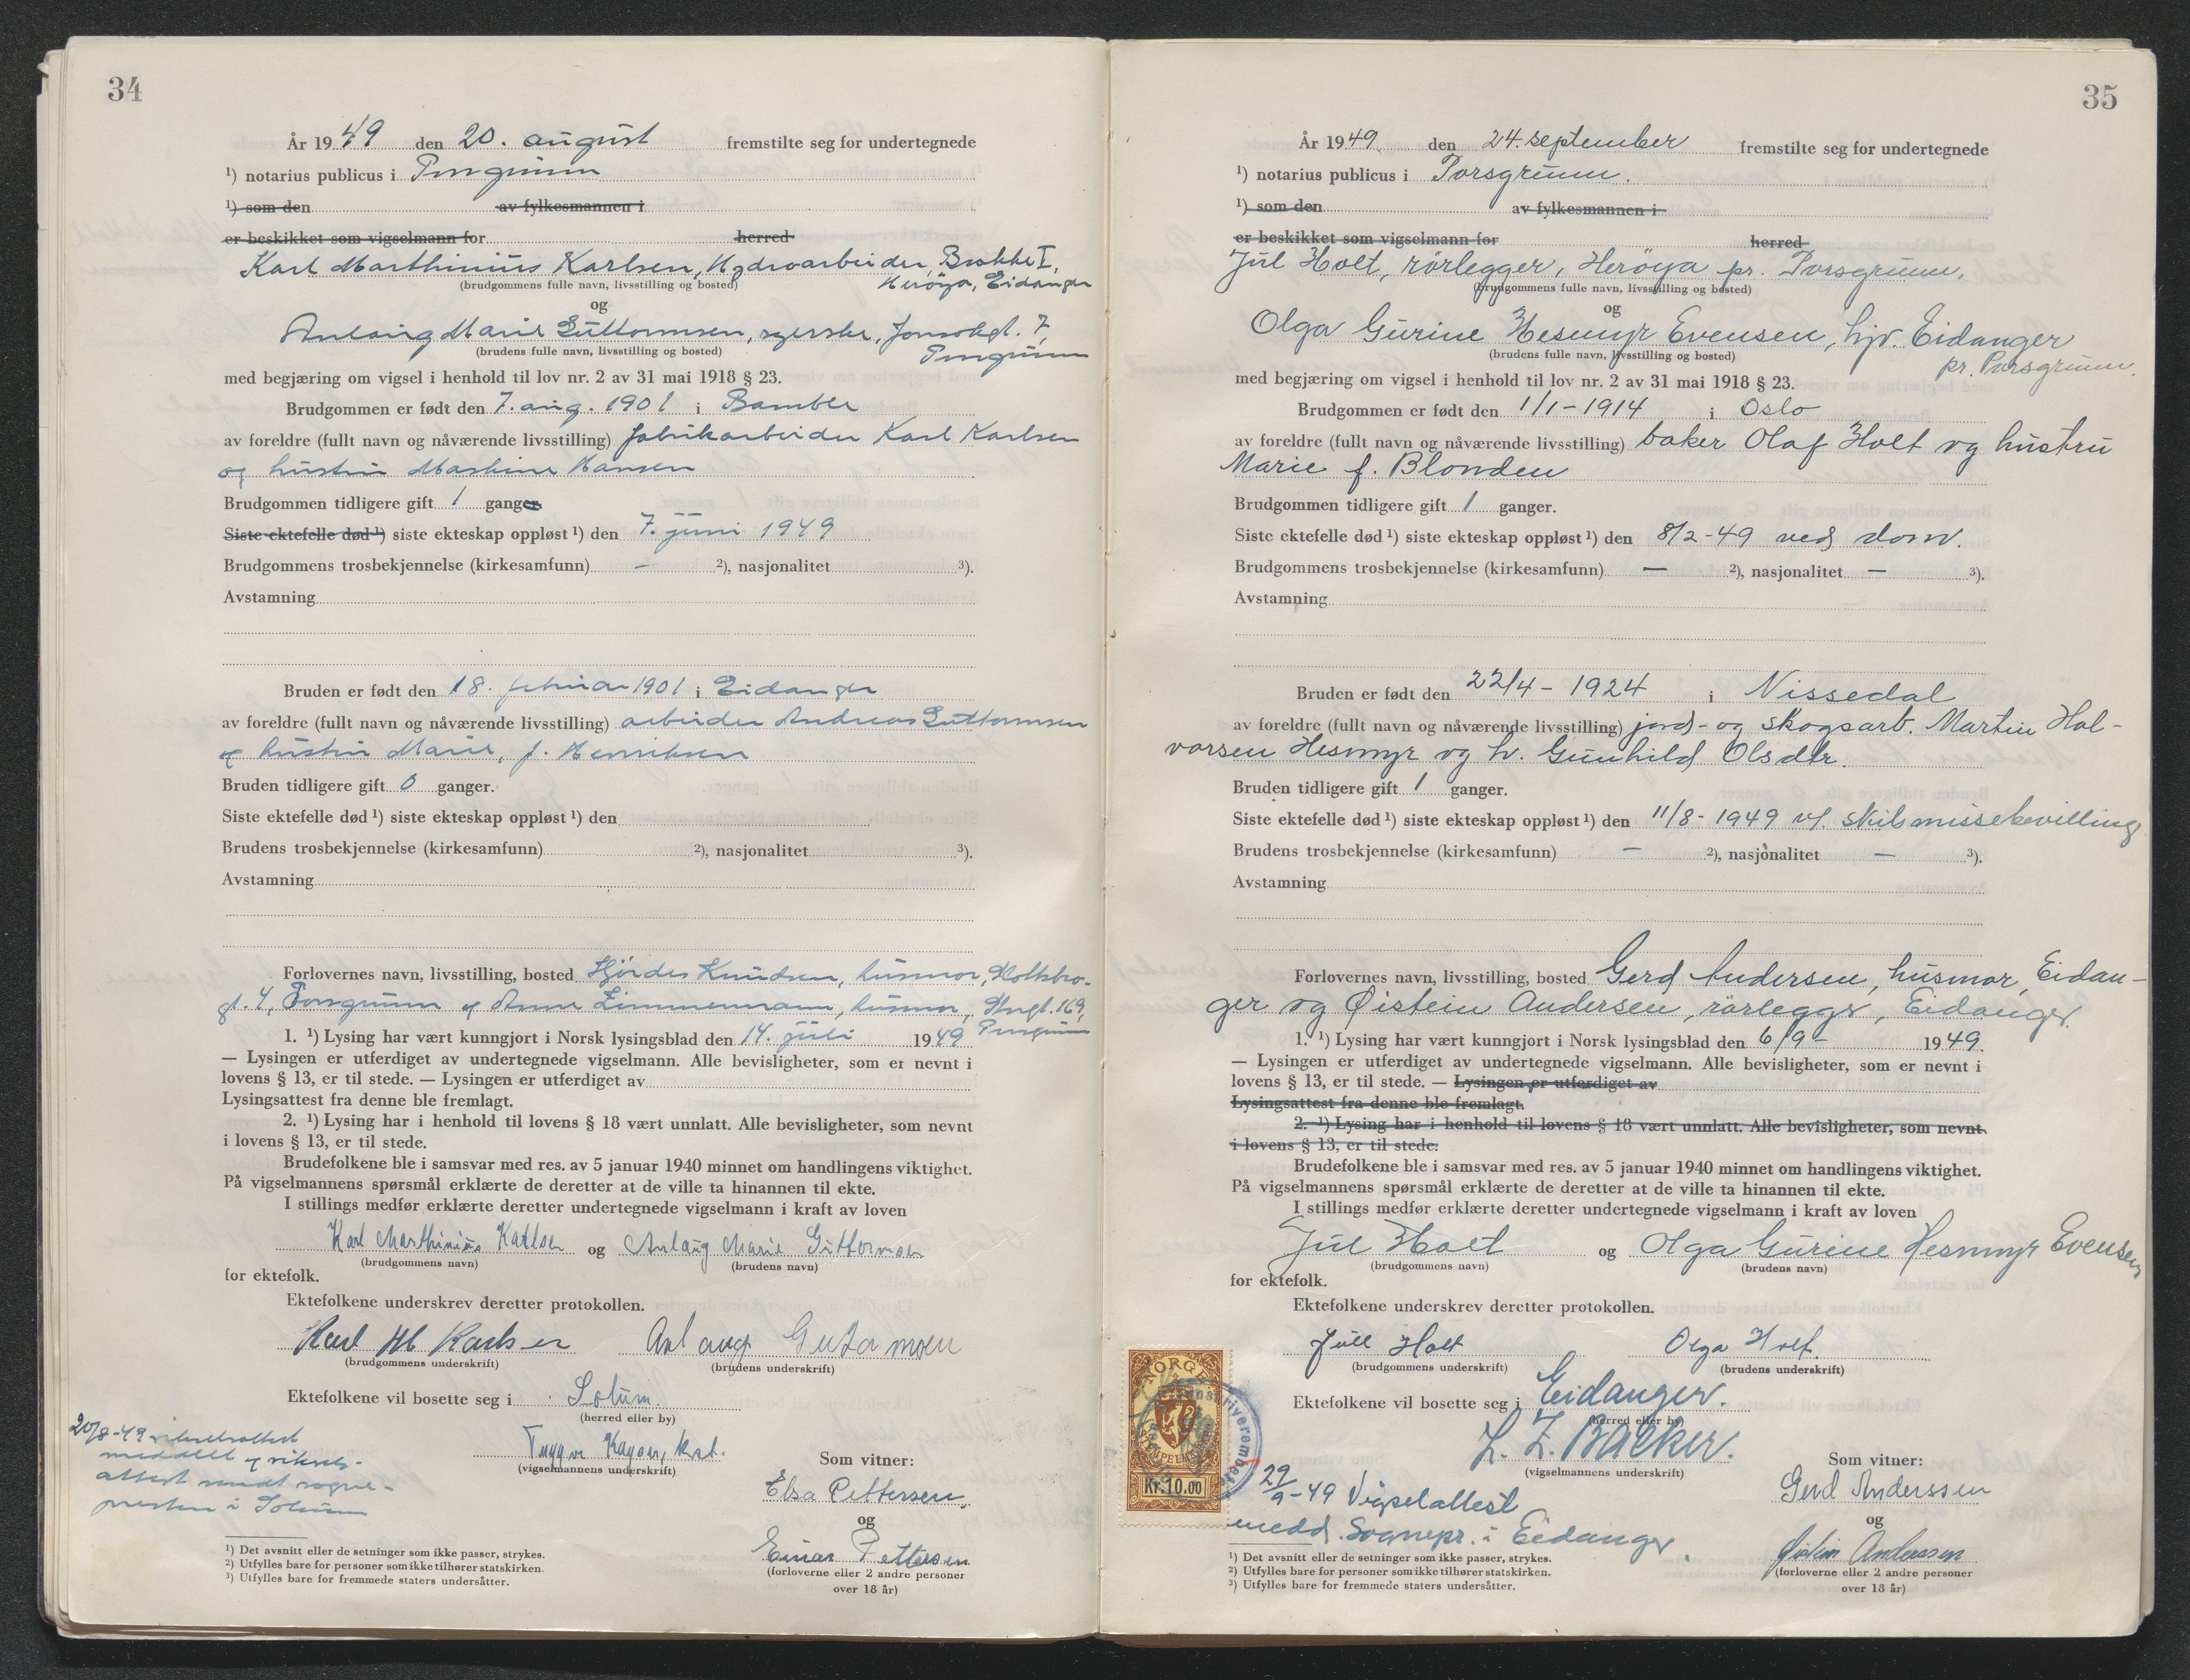 34
År 1949 den 20. august fremstilte seg for undertegnede
¹) notarius publicus i Porsgrunn
¹) som den av fylkesmannen i
er beskikket som vigselmann for herred
Karl Marthinius Karlsen, Hydroarbeider, Brekke I,
Herøya, Eidanger
(brudgommens fulle navn, livsstilling og bosted)
og
Anlaug Marie Guttormsen, syerske, Jonsokgt. 7,
Porsgrunn
(brudens fulle navn, livsstilling og bosted)
med begjæring om vigsel i henhold til lov nr. 2 av 31 mai 1918 § 23.
Brudgommen er født den 7. aug. 1901 i Bamble
av foreldre (fullt navn og nåværende livsstilling) fabrikarbeider Karl Karlsen
og hustru Maskine Hansen
Brudgommen tidligere gift 1 ganger
Siste ektefelle død ¹) siste ekteskap oppløst ¹) den 7. juni 1949
Brudgommens trosbekjennelse (kirkesamfunn) - ²), nasjonalitet ³).
Avstamning
Bruden er født den 18. februar 1901 i Eidanger
av foreldre (fullt navn og nåværende livsstilling) arbeider Andreas Guttormsen
og hustru Marie, f. Henriksen
Bruden tidligere gift 0 ganger.
Siste ektefelle død ¹) siste ekteskap oppløst ¹) den
Brudens trosbekjennelse (kirkesamfunn) ²), nasjonalitet ³).
Avstamning
Forlovernes navn, livsstilling, bosted Hjørdis Knudsen, husmor, Holtebro-
gt. 4, Porsgrunn og Anne Zimmermann, husmor, Storgt. 169,
Porsgrunn
1. ¹) Lysing har vært kunngjort i Norsk lysingsblad den 14. juli 1949
— Lysingen er utferdiget av undertegnede vigselmann. Alle bevisligheter, som er nevnt i
lovens § 13, er til stede. — Lysingen er utferdiget av
Lysingsattest fra denne ble fremlagt.
2. ¹) Lysing har i henhold til lovens § 18 vært unnlatt. Alle bevisligheter, som nevnt
i lovens § 13, er til stede.
Brudefolkene ble i samsvar med res. av 5 januar 1940 minnet om handlingens viktighet.
På vigselmannens spørsmål erklærte de deretter at de ville ta hinannen til ekte.
I stillings medfør erklærte deretter undertegnede vigselmann i kraft av loven
Karl Marthinius Karlsen og Anlaug Marie Guttormsen
(brudgommens navn) (brudens navn)
for ektefolk.
Ektefolkene underskrev deretter protokollen.
Karl M Karlsen Anlaug Gutormsen
(brudgommens underskrift) (brudens underskrift)
Ektefolkene vil bosette seg i Solum.
(herred eller by)
Trygve Kayser, kst.
(vigselmannens underskrift)
Som vitner:
Elsa Pettersen
og
Einar Pettersen
(forloverne eller 2 andre personer
over 18 år)
20/8-49 vigselsattest
meddelt og vigsels-
attest sendt sogne-
presten i Solum
¹) Det avsnitt eller de setninger som ikke passer, strykes.
²) Utfylles bare for personer som ikke tilhører statskirken.
³) Utfylles bare for fremmede staters undersåtter.
35
År 1949. den 24. september fremstilte seg for undertegnede
¹) notarius publicus i Porsgrunn.
¹) som den av fylkesmannen i
er beskikket som vigselmann for herred
Jul Holt, rörlegger, Heröya pr. Porsgrunn.
(brudgommens fulle navn, livsstilling og bosted)
og
Olga Gurine Hesmyr Evensen, hjv. Eidanger
pr. Porsgrunn.
(brudens fulle navn, livsstilling og bosted)
med begjæring om vigsel i henhold til lov nr. 2 av 31 mai 1918 § 23.
Brudgommen er født den 1/1-1914 i Oslo
av foreldre (fullt navn og nåværende livsstilling) baker Olaf Holt og hustru
Marie f. Blonden
Brudgommen tidligere gift 1 ganger.
Siste ektefelle død ¹) siste ekteskap oppløst ¹) den 8/2-49 ved dom.
Brudgommens trosbekjennelse (kirkesamfunn) — ²), nasjonalitet — ³).
Avstamning
Bruden er født den 22/4-1924 i Nissedal
av foreldre (fullt navn og nåværende livsstilling) jord- og skogsarb. Martin Hal-
vorsen Hesmyr og h. Gunhild Olsdtr.
Bruden tidligere gift 1 ganger.
Siste ektefelle død ¹) siste ekteskap oppløst ¹) den 11/8-1949 v/ skilsmissebevilling
Brudens trosbekjennelse (kirkesamfunn) — ²), nasjonalitet — ³).
Avstamning
Forlovernes navn, livsstilling, bosted Gerd Andersen, husmor, Eidan-
ger og Øistein Andersen, rörlegger, Eidanger.
1. ¹) Lysing har vært kunngjort i Norsk lysingsblad den 6/9- 1949.
— Lysingen er utferdiget av undertegnede vigselmann. Alle bevisligheter, som er nevnt i
lovens § 13, er til stede. — Lysingen er utferdiget av
Lysingsattest fra denne ble fremlagt.
2. ¹) Lysing har i henhold til lovens § 18 vært unnlatt. Alle bevisligheter, som nevnt
i lovens § 13, er til stede.
Brudefolkene ble i samsvar med res. av 5 januar 1940 minnet om handlingens viktighet.
På vigselmannens spørsmål erklærte de deretter at de ville ta hinannen til ekte.
I stillings medfør erklærte deretter undertegnede vigselmann i kraft av loven
Jul Holt og Olga Gurine Hesmyr Evensen
(brudgommens navn) (brudens navn)
for ektefolk.
Ektefolkene underskrev deretter protokollen.
Jull Holt Olga Holt.
(brudgommens underskrift) (brudens underskrift)
Ektefolkene vil bosette seg i Eidanger.
(herred eller by)
L. Z. Backer.
(vigselmannens underskrift)
Som vitner:
Gerd Anderssen
og
Øistein Anderssen
(forloverne eller 2 andre personer
over 18 år)
NORGE
Kr. 10.00
29/9-49 Vigselattest
medd. Sognepr. i Eidanger.
¹) Det avsnitt eller de setninger som ikke passer, strykes.
²) Utfylles bare for personer som ikke tilhører statskirken.
³) Utfylles bare for fremmede staters undersåtter.